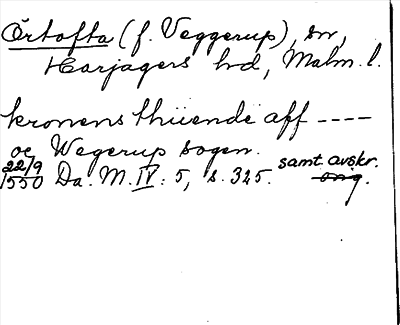 Örtofta (f. Veggerup), sn,
Harjagers hd, Malm. l.
kronens thiiende aff ----
oc Wegerup sogen.
22/9 1550 Da. M. IV: 5, s. 325. samt avskr.
orig.